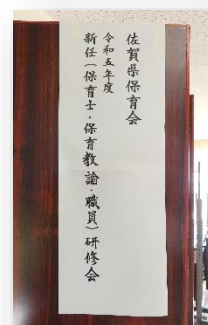 佐賀県保育会
令和五年度
新任(保育士・保育教諭・職員)研修会